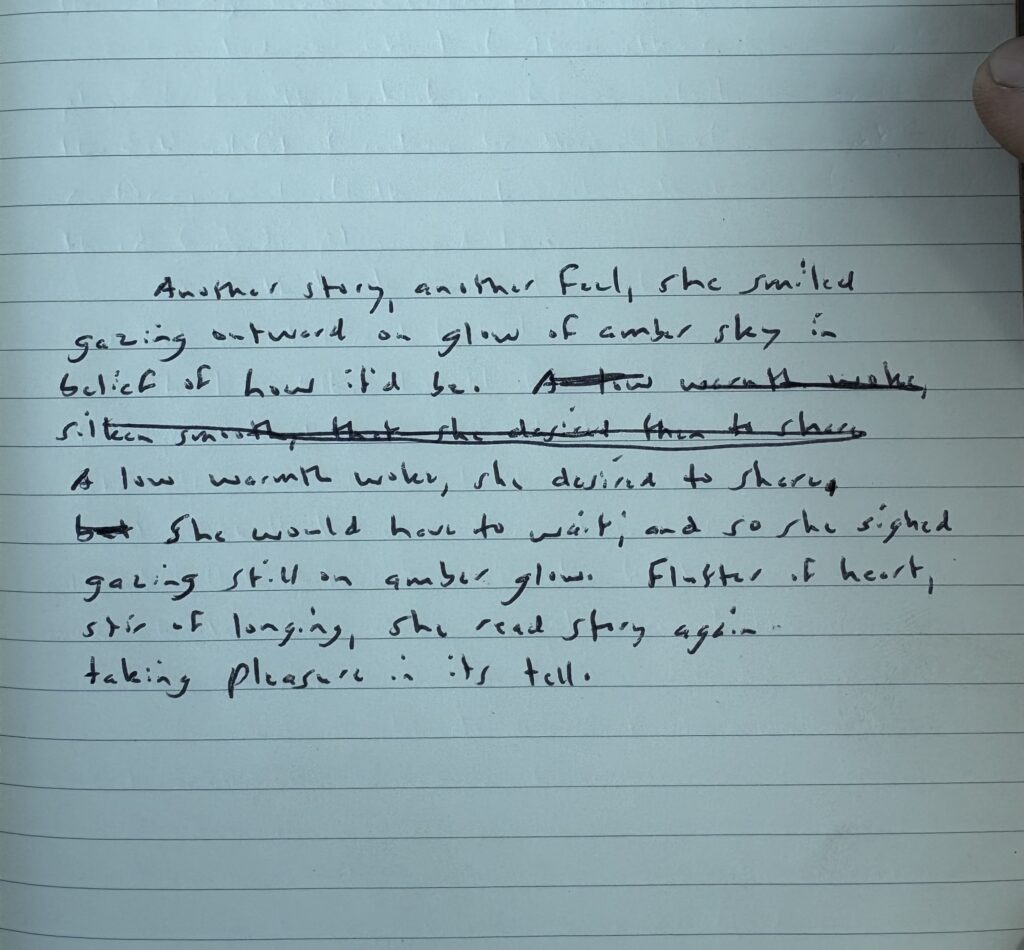 Another story, another feel, she smiled
gazing outward on glow of amber sky in
belief of how it'd be. A low warmth woke,
silken smooth, that she desired them to share
A low warmth woke, she desired to share,
but She would have to wait; and so she sighed
gazing still on amber glow. Flutter of heart,
stir of longing, she read story again
taking pleasure in its tell.